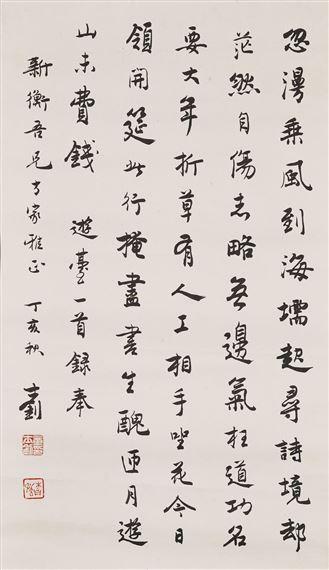 忽漫乘風到海壖超尋詩境却
茫然自傷志略無邊氣枉道功名
要大年折草有人工相手坐花今日
領開筵此行掩盡書生醜匝月遊
山未費錢 遊臺一首錄奉
新衡吾兄方家雅正 丁亥秋 士釗